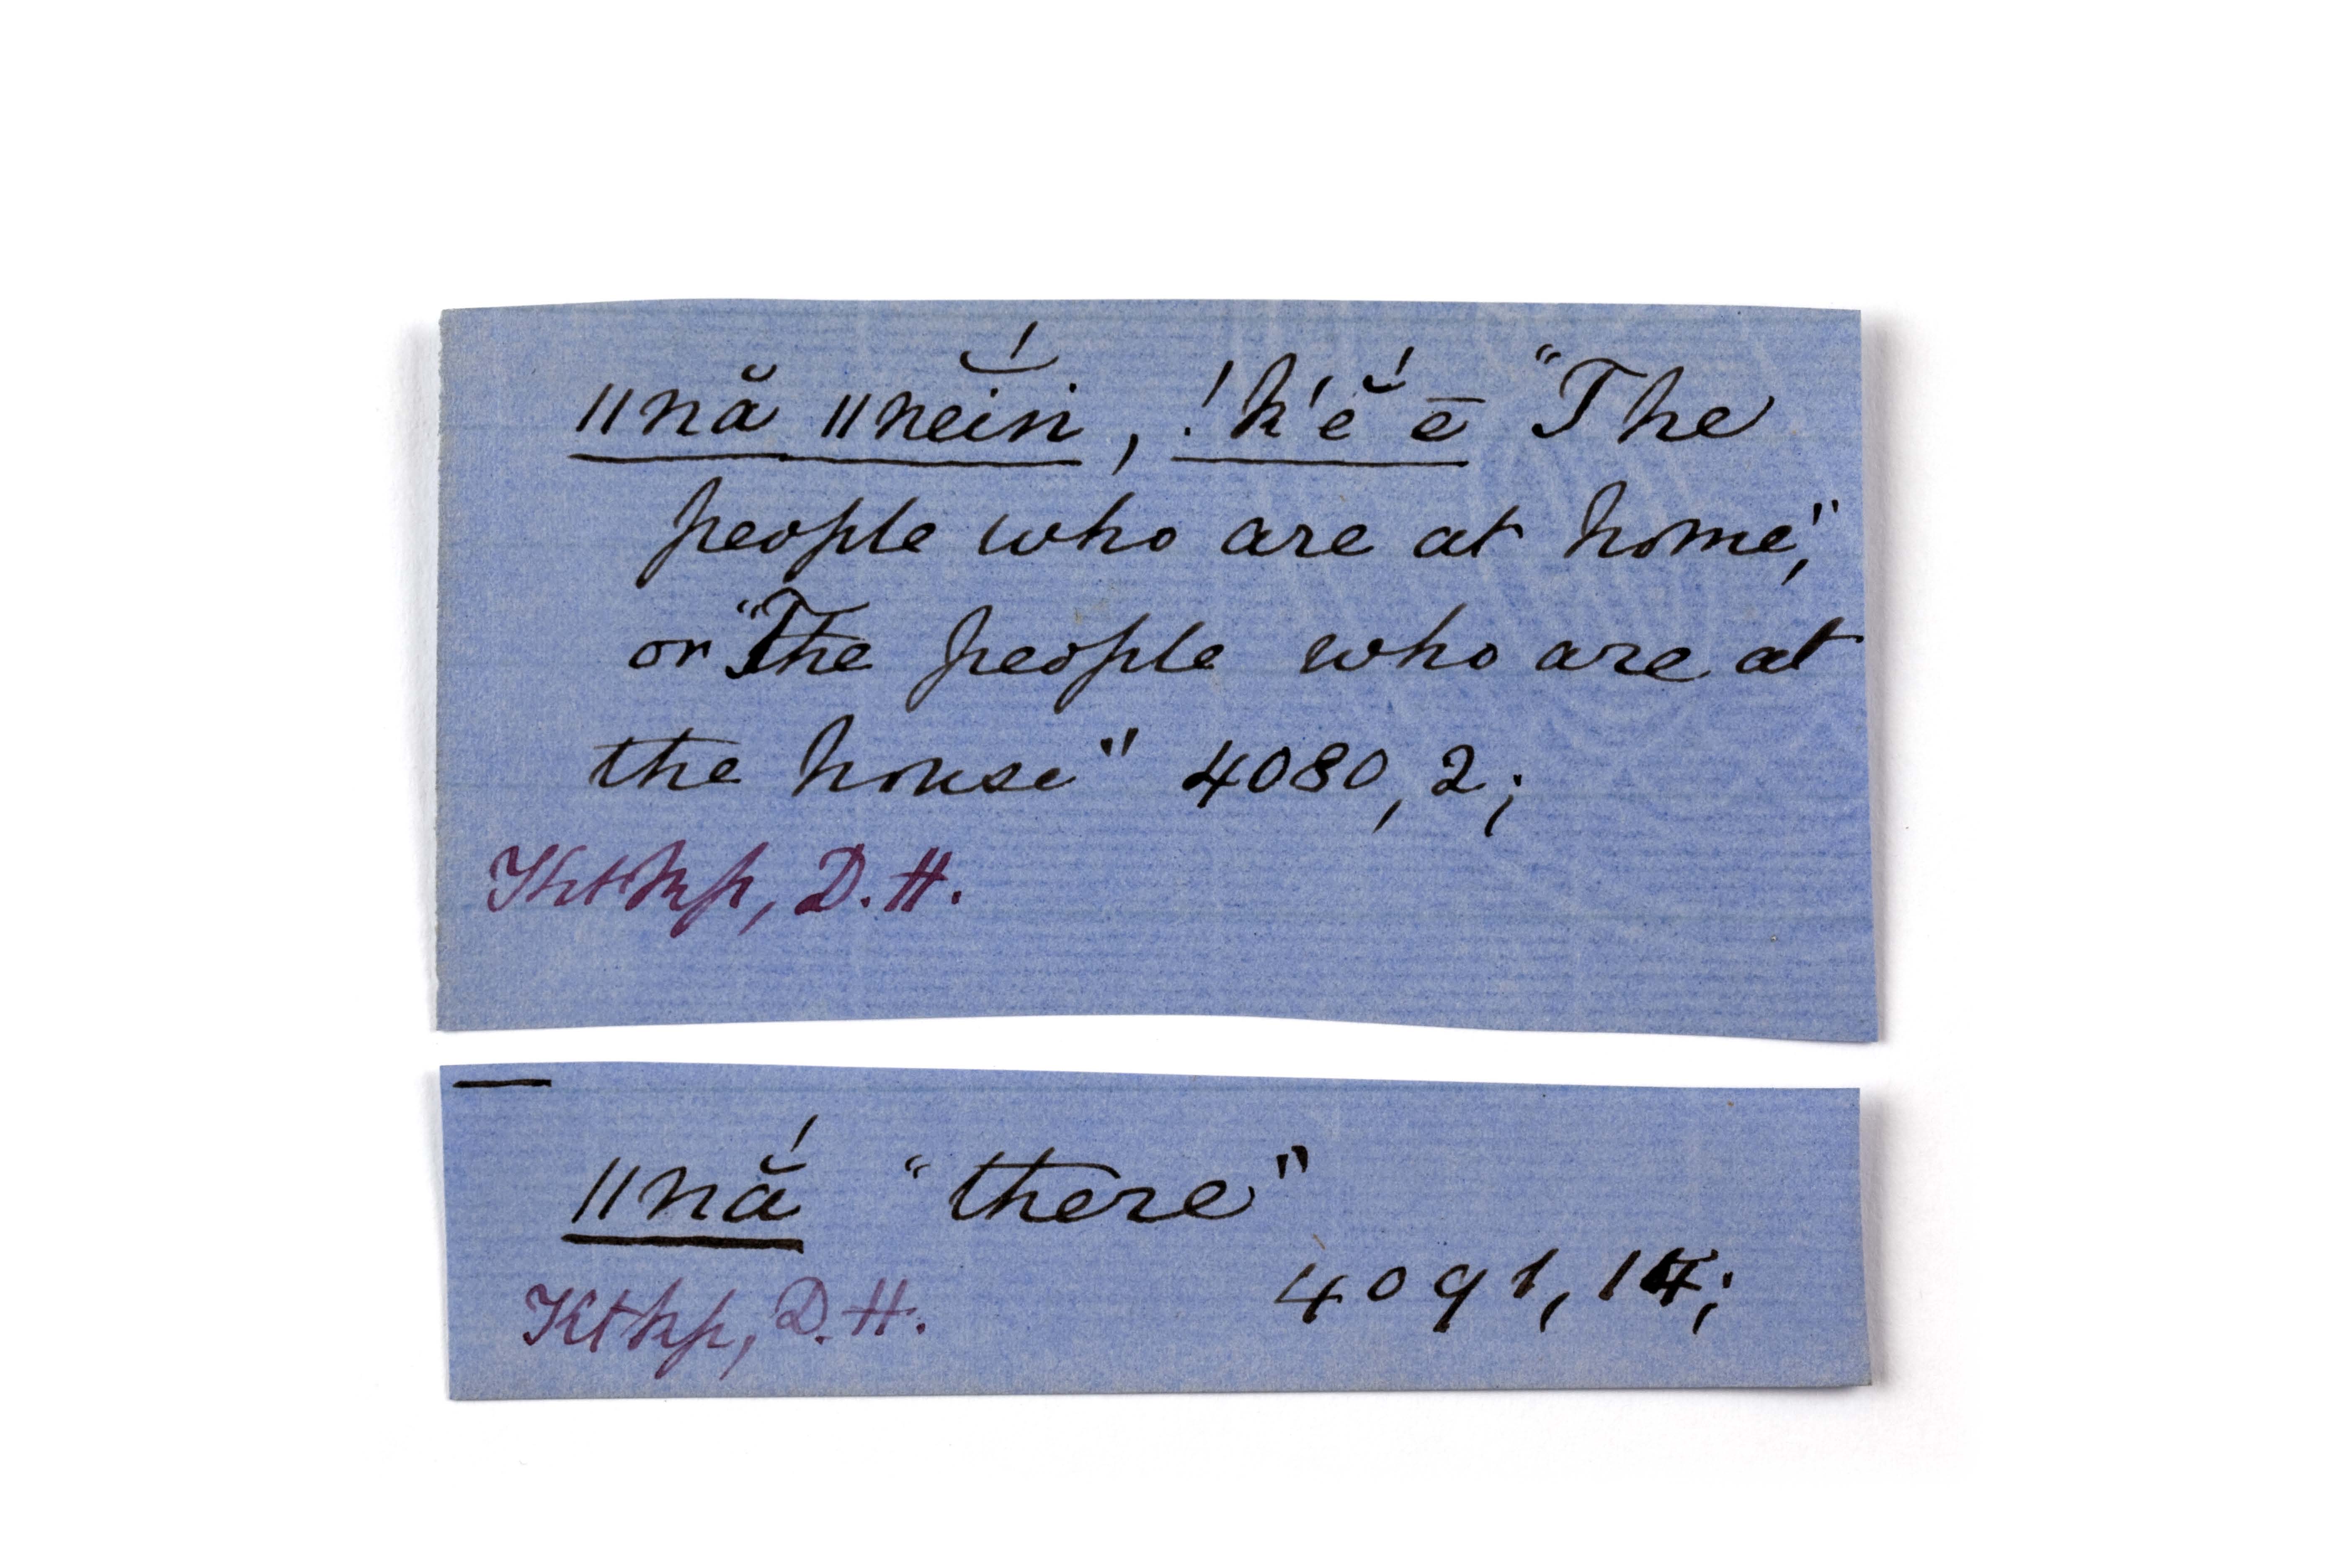 ǁnă ǁnein̆́, !k'ĕ́ ē "The
people who are at home,"
or "The people who are at
the house" 4080, 2;
Ktkkp, D.H.
ǁnằ́ "there"
4091, 14;
Ktkkp, D.H.